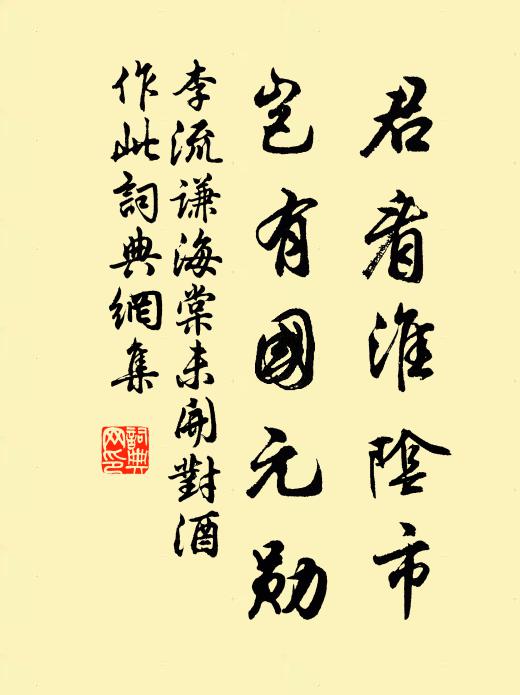 君看淮陰市
岂有國元勋
李流谦海棠未開對酒
作此詞典網集
詞典
网印